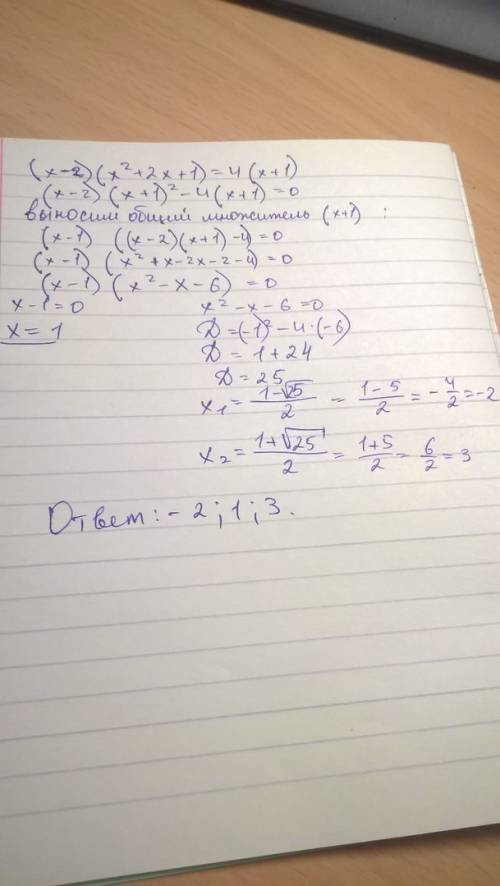 (x-2)(x²+2x+1)=4(x+1)
(x-2)(x+1)²-4(x+1)=0
выносим общий множитель (x+1) :
(x-1) ((x-2)(x+1)-4)=0
(x-1) (x²+x-2x-2-4)=0
(x-1) (x²-x-6) =0
x-1=0 x²-x-6=0
x=1 D=(-1)²-4·(-6)
D = 1+24
D=25
x₁= (1-√25)/2 = (1-5)/2 = -4/2=-2
x₂= (1+√25)/2 = (1+5)/2 = 6/2 = 3
Ответ: -2; 1; 3.